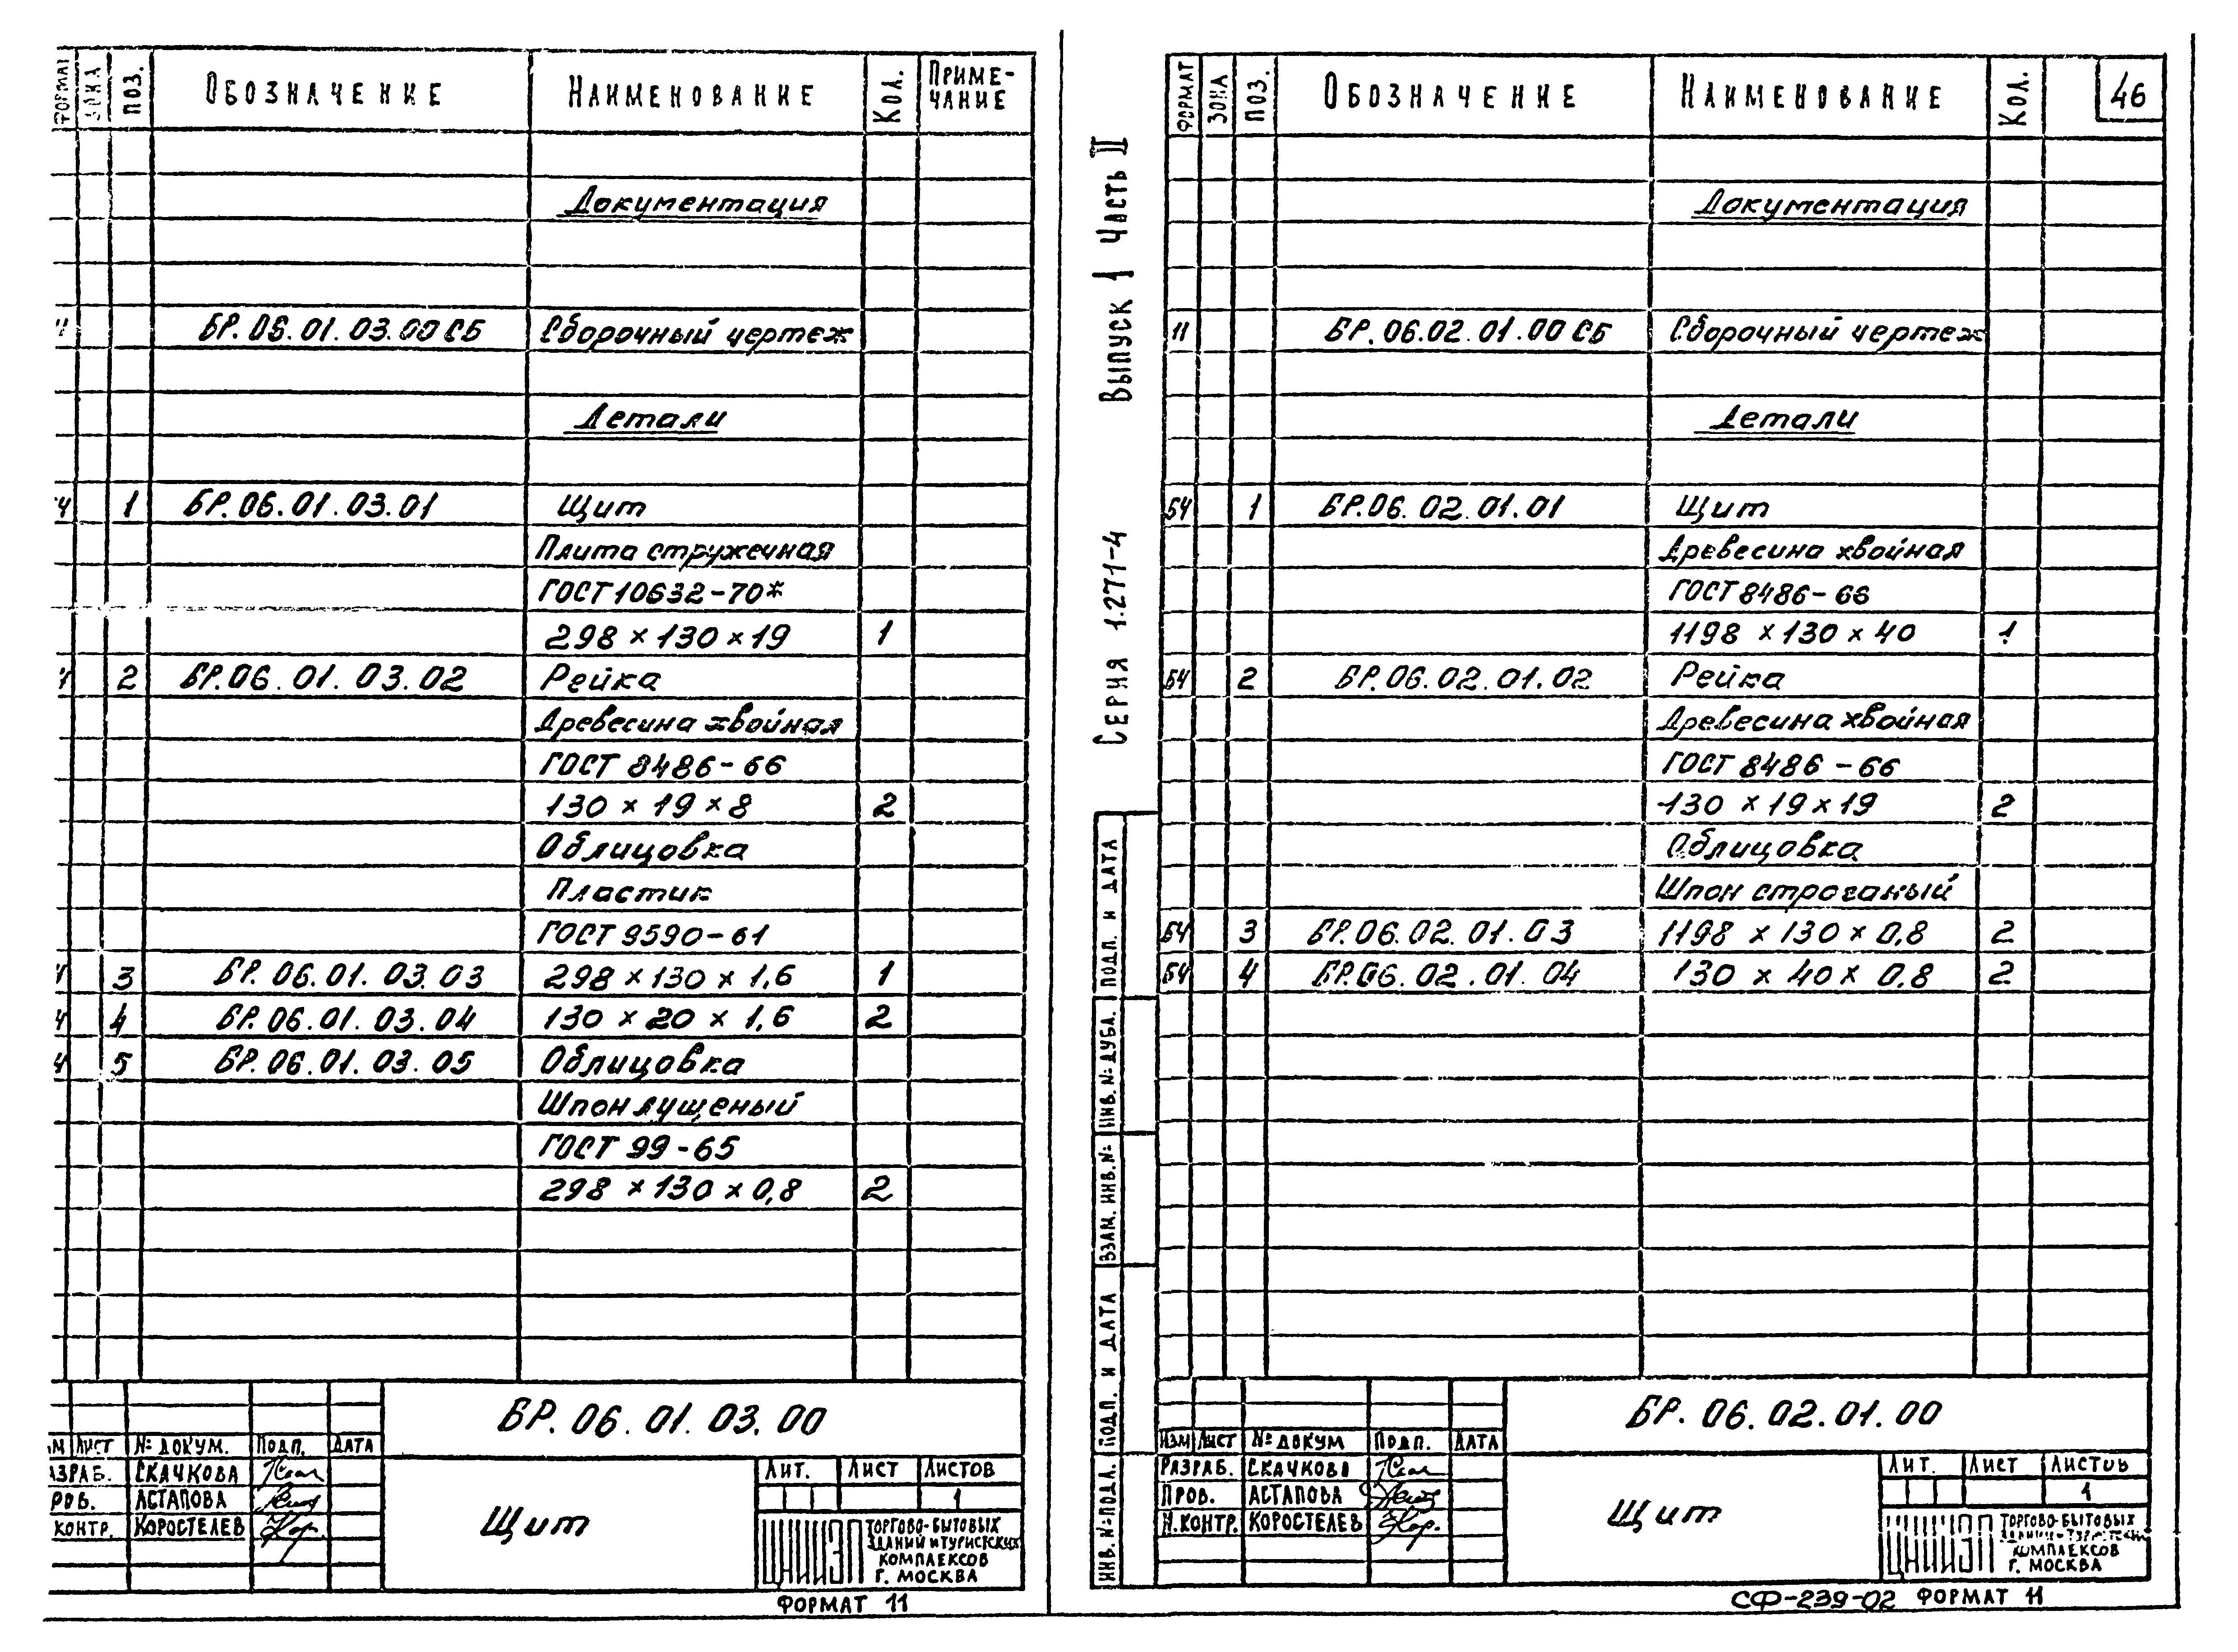 ФОРМАТ ЗОНА ПОЗ. ОБОЗНАЧЕНИЕ НАИМЕНОВАНИЕ КОЛ. ПРИМЕ-
ЧАНИЕ
Документация
11 БР.06.01.03.00 СБ Сборочный чертеж
Детали
БЧ 1 БР.06.01.03.01 Щит
Плита стружечная
ГОСТ 10632-70*
298 × 130 × 19 1
БЧ 2 БР.06.01.03.02 Рейка
Древесина хвойная
ГОСТ 8486-66
130 × 19 × 8 2
Облицовка
Пластик
ГОСТ 9590-61
БЧ 3 БР.06.01.03.03 298 × 130 × 1,6 1
БЧ 4 БР.06.01.03.04 130 × 20 × 1,6 2
БЧ 5 БР.06.01.03.05 Облицовка
Шпон лущеный
ГОСТ 99-65
298 × 130 × 0,8 2
БР.06.01.03.00
ИЗМ ЛИСТ № ДОКУМ. ПОДП. ДАТА
РАЗРАБ. СКАЧКОВА
ПРОВ. АСТАПОВА
Н.КОНТР. КОРОСТЕЛЕВ
Щит
ЛИТ. ЛИСТ ЛИСТОВ
1
ЦНИИЭП ТОРГОВО-БЫТОВЫХ
ЗДАНИЙ И ТУРИСТСКИХ
КОМПЛЕКСОВ
Г. МОСКВА
ФОРМАТ 11
СЕРИЯ 1.271-4 ВЫПУСК 1 ЧАСТЬ II
ИНВ.№ ПОДЛ. ПОДП. И ДАТА ВЗАМ. ИНВ.№ ИНВ.№ ДУБЛ. ПОДП. И ДАТА
ФОРМАТ ЗОНА ПОЗ. ОБОЗНАЧЕНИЕ НАИМЕНОВАНИЕ КОЛ. 46
Документация
11 БР.06.02.01.00 СБ Сборочный чертеж
Детали
БЧ 1 БР.06.02.01.01 Щит
Древесина хвойная
ГОСТ 8486-66
1198 × 130 × 40 1
БЧ 2 БР.06.02.01.02 Рейка
Древесина хвойная
ГОСТ 8486-66
130 × 19 × 19 2
Облицовка
Шпон строганый
БЧ 3 БР.06.02.01.03 1198 × 130 × 0,8 2
БЧ 4 БР.06.02.01.04 130 × 40 × 0,8 2
БР.06.02.01.00
ИЗМ ЛИСТ № ДОКУМ ПОДП. ДАТА
РАЗРАБ. СКАЧКОВА
ПРОВ. АСТАПОВА
Н.КОНТР. КОРОСТЕЛЕВ
Щит
ЛИТ. ЛИСТ ЛИСТОВ
1
ЦНИИЭП ТОРГОВО-БЫТОВЫХ
ЗДАНИЙ И ТУРИСТСКИХ
КОМПЛЕКСОВ
Г. МОСКВА
СФ-239-02 ФОРМАТ 11